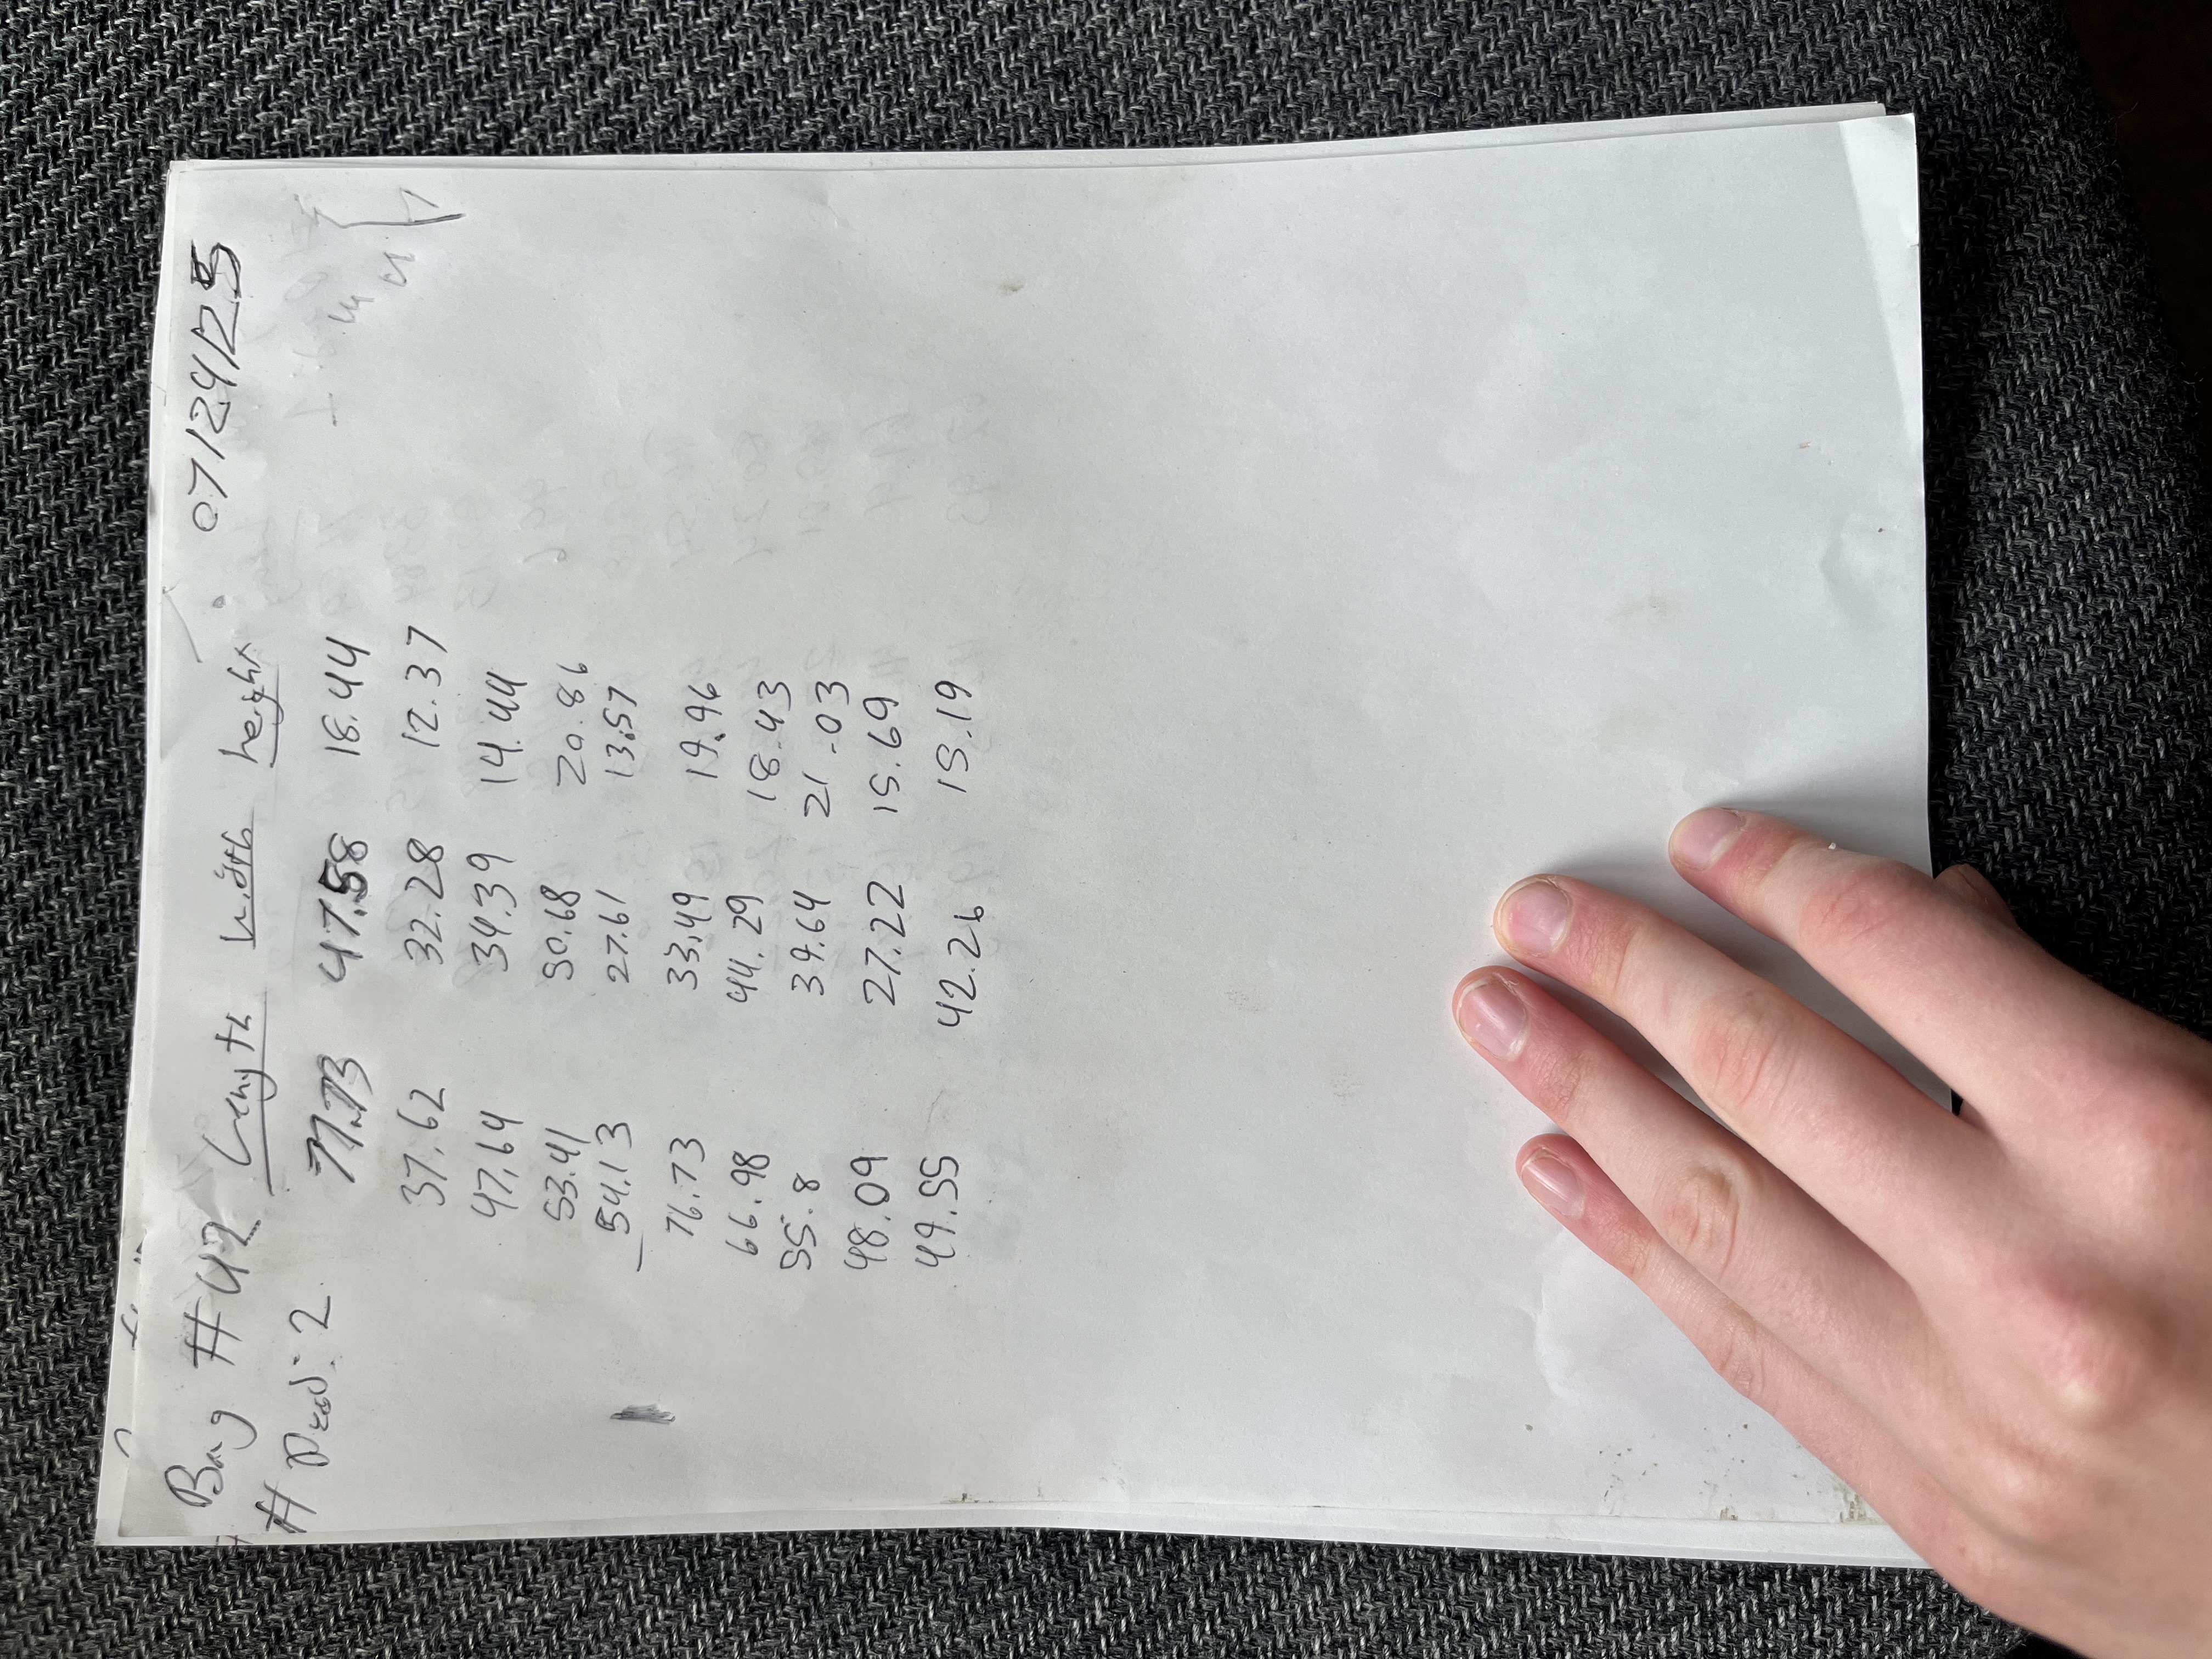 Bag #42 Length Width height 07/24/25
# Dead: 2
77.73 47.58 18.44
37.62 32.28 12.37
47.64 34.39 14.44
53.41 50.68 20.86
54.13 27.61 13.57
76.73 33.49 19.96
66.98 44.29 18.43
55.8 39.64 21.03
48.09 27.22 15.69
49.55 42.26 15.19